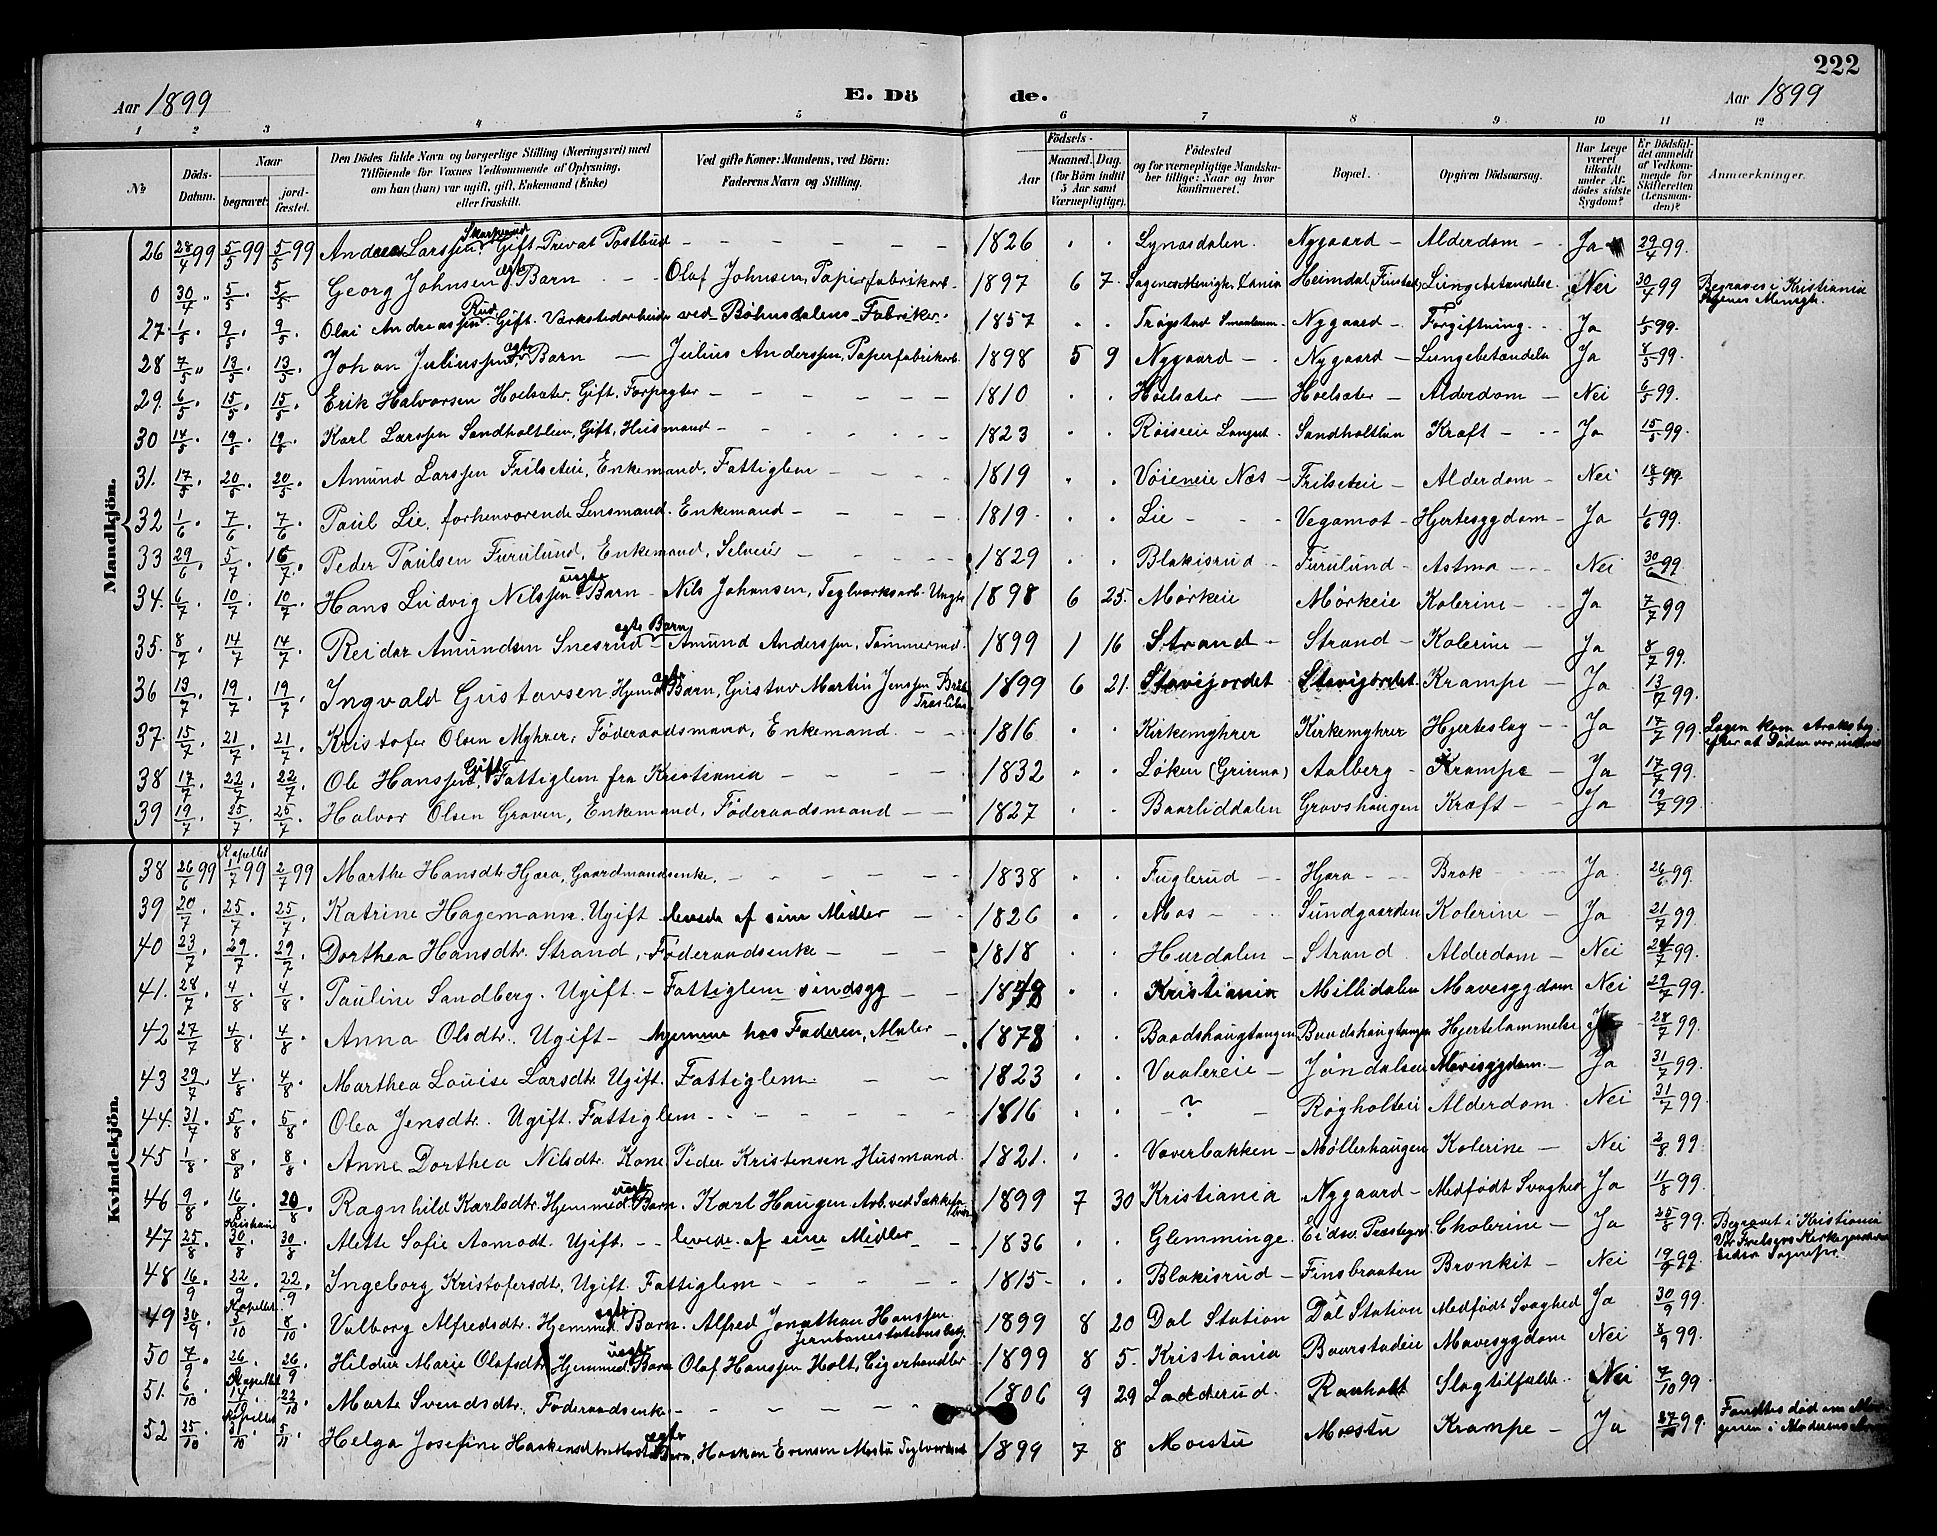 222
Aar 1899 E. Dö de. Aar 1899
1 2 3 4 5 6 7 8 9 10 11 12
No Döds-Datum. Naar begravet. jordfæstet. Den Dödes fulde Navn og borgerlige Stilling (Næringsvei) med Tilföiende for Voxnes Vedkommende af Oplysning, om han (hun) var ugift, gift, Enkemand (Enke) eller fraskilt. Ved gifte Koner: Mandens, ved Börn: Faderens Navn og Stilling. Födsels- Aar Maaned. Dag. (for Börn indtil 5 Aar samt Værnepligtige). Födested og for værnepligtige Mandskaber tillige: Naar og hvor konfirmeret. Bopæl. Opgiven Dödsaarsag. Har Læge været tilkaldt under Afdödes sidste Sygdom? Er Dödsfaldet anmeldt af Vedkommende for Skifteretten (Lensmanden)? Anmærkninger.
Mandkjön.
26 28/4 99 5/5 99 5/5 99 Andreas Larssen Skarpsnud Gift Privat Postbud – – – 1826 Lynasdalen. Nygaard – Alderdom – Ja 29/4 99.
0 30/4 " 5/5 5/5 Georg Johnsen ægte Barn – – Olaf Johnsen, Papirfabrikarb. 1897 6 7 Heimdal, Lungebetændelse. Nei 30/4 99 Begraves i Kristiania Sagenes Menigh.
27. 1/5 9/5 9/5 Olai Andreassen Rud Gift. Værkstedarbeider ved Bøhnsdalens Fabriker. 1857 Trøgstad Nygaard – Forgiftning. Ja 1/5 99.
28 7/5 " 13/5 13/5 Johan Juliussen ægte Barn – Julius Anderssen, Papirfabrikarb. 1898 5 9 Nygaard – Nygaard – Lungebetændelse Ja 8/5 99.
29. 6/5 15/5 15/5 Erik Halvorsen Hoelsæter. Gift, Forpagter – – 1810 Hoelsæter – Hoelsæter – Alderdom – Nei 6/5 99.
30 14/5 19/5 19/5 Karl Larssen Sandholtlien, Gift, Husmand – – 1823 Røiseie Langset. Sandholtlien Kræft – Ja 15/5 99.
31. 17/5 20/5 20/5 Amund Larssen Frilseteie, Enkemand, Fattiglem – – 1819 Vøieneie Næs – Frilseteie – Alderdom – Nei 18/5 99.
32 1/6 7/6 7/6 Paul Lie, forhenværende Lensmand. Enkemand – – 1819. Lie – Vegamot – Hjertesygdom – Ja 1/6 99.
33 29/6 5/7 16/7 Peder Paulsen Furulund, Enkemand, Selveier – – 1829 Blakisrud – Furulund – Astma – Nei 30/6 99
34. 6/7 10/7 10/7 Hans Ludvig Nilssen uægte Barn – Nils Johansen, Teglværksarb. Ungk. 1898 6 25. Mørkeie Mørkeie Kolerine – Ja 7/7 99
35. 8/7 14/7 14/7 Reidar Amundsen Snesrud ægte Barn – Amund Anderssen, Tømmermd. 1899 1 16 Strand – Strand – Kolerine – Ja 8/7 99.
36 13/7 19/7 19/7 Ingvald Gustavsen Hjemm. ægte Barn, Gustav Martin Jenssen 1899 6 21. Stavijordet Stavijordet. Krampe – Ja 13/7 99.
37. 15/7 21/7 21/7 Kristofer Olsen Myhrer, Føderaadsmand, Enkemand. – – 1816 Kirkemyhrer Kirkemyhrer Hjerteslag – Ja 17/7 99. Lægen kom straks efter at Døden var
38 17/7 22/7 22/7 Ole Hanssen, Gift, Fattiglem fra Kristiania – – 1832 Løken (Grinna) Aalberg – Krampe – Ja 17/7 99.
39 19/7 25/7 25/7 Halvor Olsen Graven, Enkemand, Føderaadsmand – – 1827 Baarliddalen Gravshaugen Kræft – Ja 19/7 99
Kvindekjön.
38 26/6 99 Kapellet 1/7 99 2/7 99 Marthe Hansdtr Hjæra, Gaardmandsenke. – – 1838 Fuglerud – Hjæra – Brok – Ja. 26/6 99.
39 20/7 25/7 25/7 Katrine Hagemann. Ugift levede af sine Midler – 1826 Mos – Sundgaarden Kolerine – Ja 21/7 99.
40 23/7 29/7 29/7 Dorthea Hansdtr. Strand, Føderaadsenke – – 1818 Hurdalen – Strand. Alderdom – Nei 24/7 99.
41. 28/7 4/8 4/8 Pauline Sandberg. Ugift. – Fattiglem sindsyg – Kristiania Millidalen Mavesygdom Nei 29/7 99.
42 27/7 4/8 4/8 Anna Olsdtr. Ugift – hjemme hos Faderen, Maler – 1878 Baadshaugtangen Baadshaugtangen Hjertelammelse 28/7 99.
43 29/7 4/8 4/8 Marthea Louise Larsdtr Ugift. Fattiglem – – 1823 Vaalereie – Jøndalseie Mavesygdom. – Ja 31/7 99.
44. 31/7 5/8 5/8 Olea Jensdtr. Ugift. Fattiglem – – 1816 – ? – Røgholteie Alderdom. Nei 31/7 99.
45 1/8 8/8 8/8 Anne Dorthea Nilsdtr. Kone Peder Kristensen Husmand. 1821. Voverbakken – Møllerhaugen Kolerine – Nei 2/8 99.
46 9/8 16/8 20/8 Ragnhild Karlsdtr. Hjemmed. uægte Barn. Karl Haugen Arb. ved 1899 7 30 Kristiania Nygaard – Medfødt Svaghed Ja 11/8 99.
47 25/8 Kristiania 30/8 30/8 Alette Sofie Aamodt. Ugift. – – levede af sine Midler – 1836 Glemminge. Eidsv. Præstegrd. Cholerine – Ja 25/8 99. Begravet i Kristiania Vor Frelsers Kirkegaard
48 16/9 22/9 22/9 Ingeborg Kristofersdtr. Ugift. Fattiglem – – 1815 – Blakisrud – Finsbraaten Bronkit – Nei 19/9 99.
49 30/9 Kapellet 3/10 8/10 Valborg Alfredsdtr. Hjemmed. ægte Barn. Alfred Jonathan Hanssen Jernbanestationsbetj. 1899 8 20 Dal Station Dal Station Medfødt Svaghed Ja 30/9 99.
50 7/9 26/9 26/9 Hildur Marie Olafsdtr Hjemmed. uægte Barn Olaf Hanssen Holt, Cigarhandler 1899 8 5. Kristiania Baarstadeie Mavesygdom Nei 8/9 99.
51. 6/10 Kapellet 14/10 22/10 Marte Svendsdtr. Føderaadsenke – – 1806 9 29 Ladderud. Ranholt Slagtilfælde. Nei 7/10 99.
52 25/10 Kapellet 31/10 5/11 Helga Josefine Haakensdtr Mostu ægte Barn, Haakon Evensen Mostu Teglværksarb. 1899 7 8 Moestu Moestu Krampe – Ja 27/10 99. Fandtes død om Morgenen i Moderens